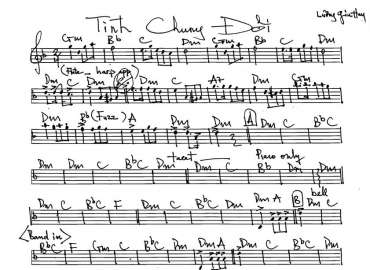 Tình Chung Đôi
Gm Bb C Dm Gm Bb C
Dm C Dm C A7 Dm Gm
Dm Bb (Fuzz) A Dm Dm A Dm C BbC
Dm Dm C BbC Dm C Bb Dm
Piano only
Dm C BbC F Dm C BbC Dm A B Dm C
bell
Band in
BbC F Gm C BbC Dm Dm A Dm C BbC Dm